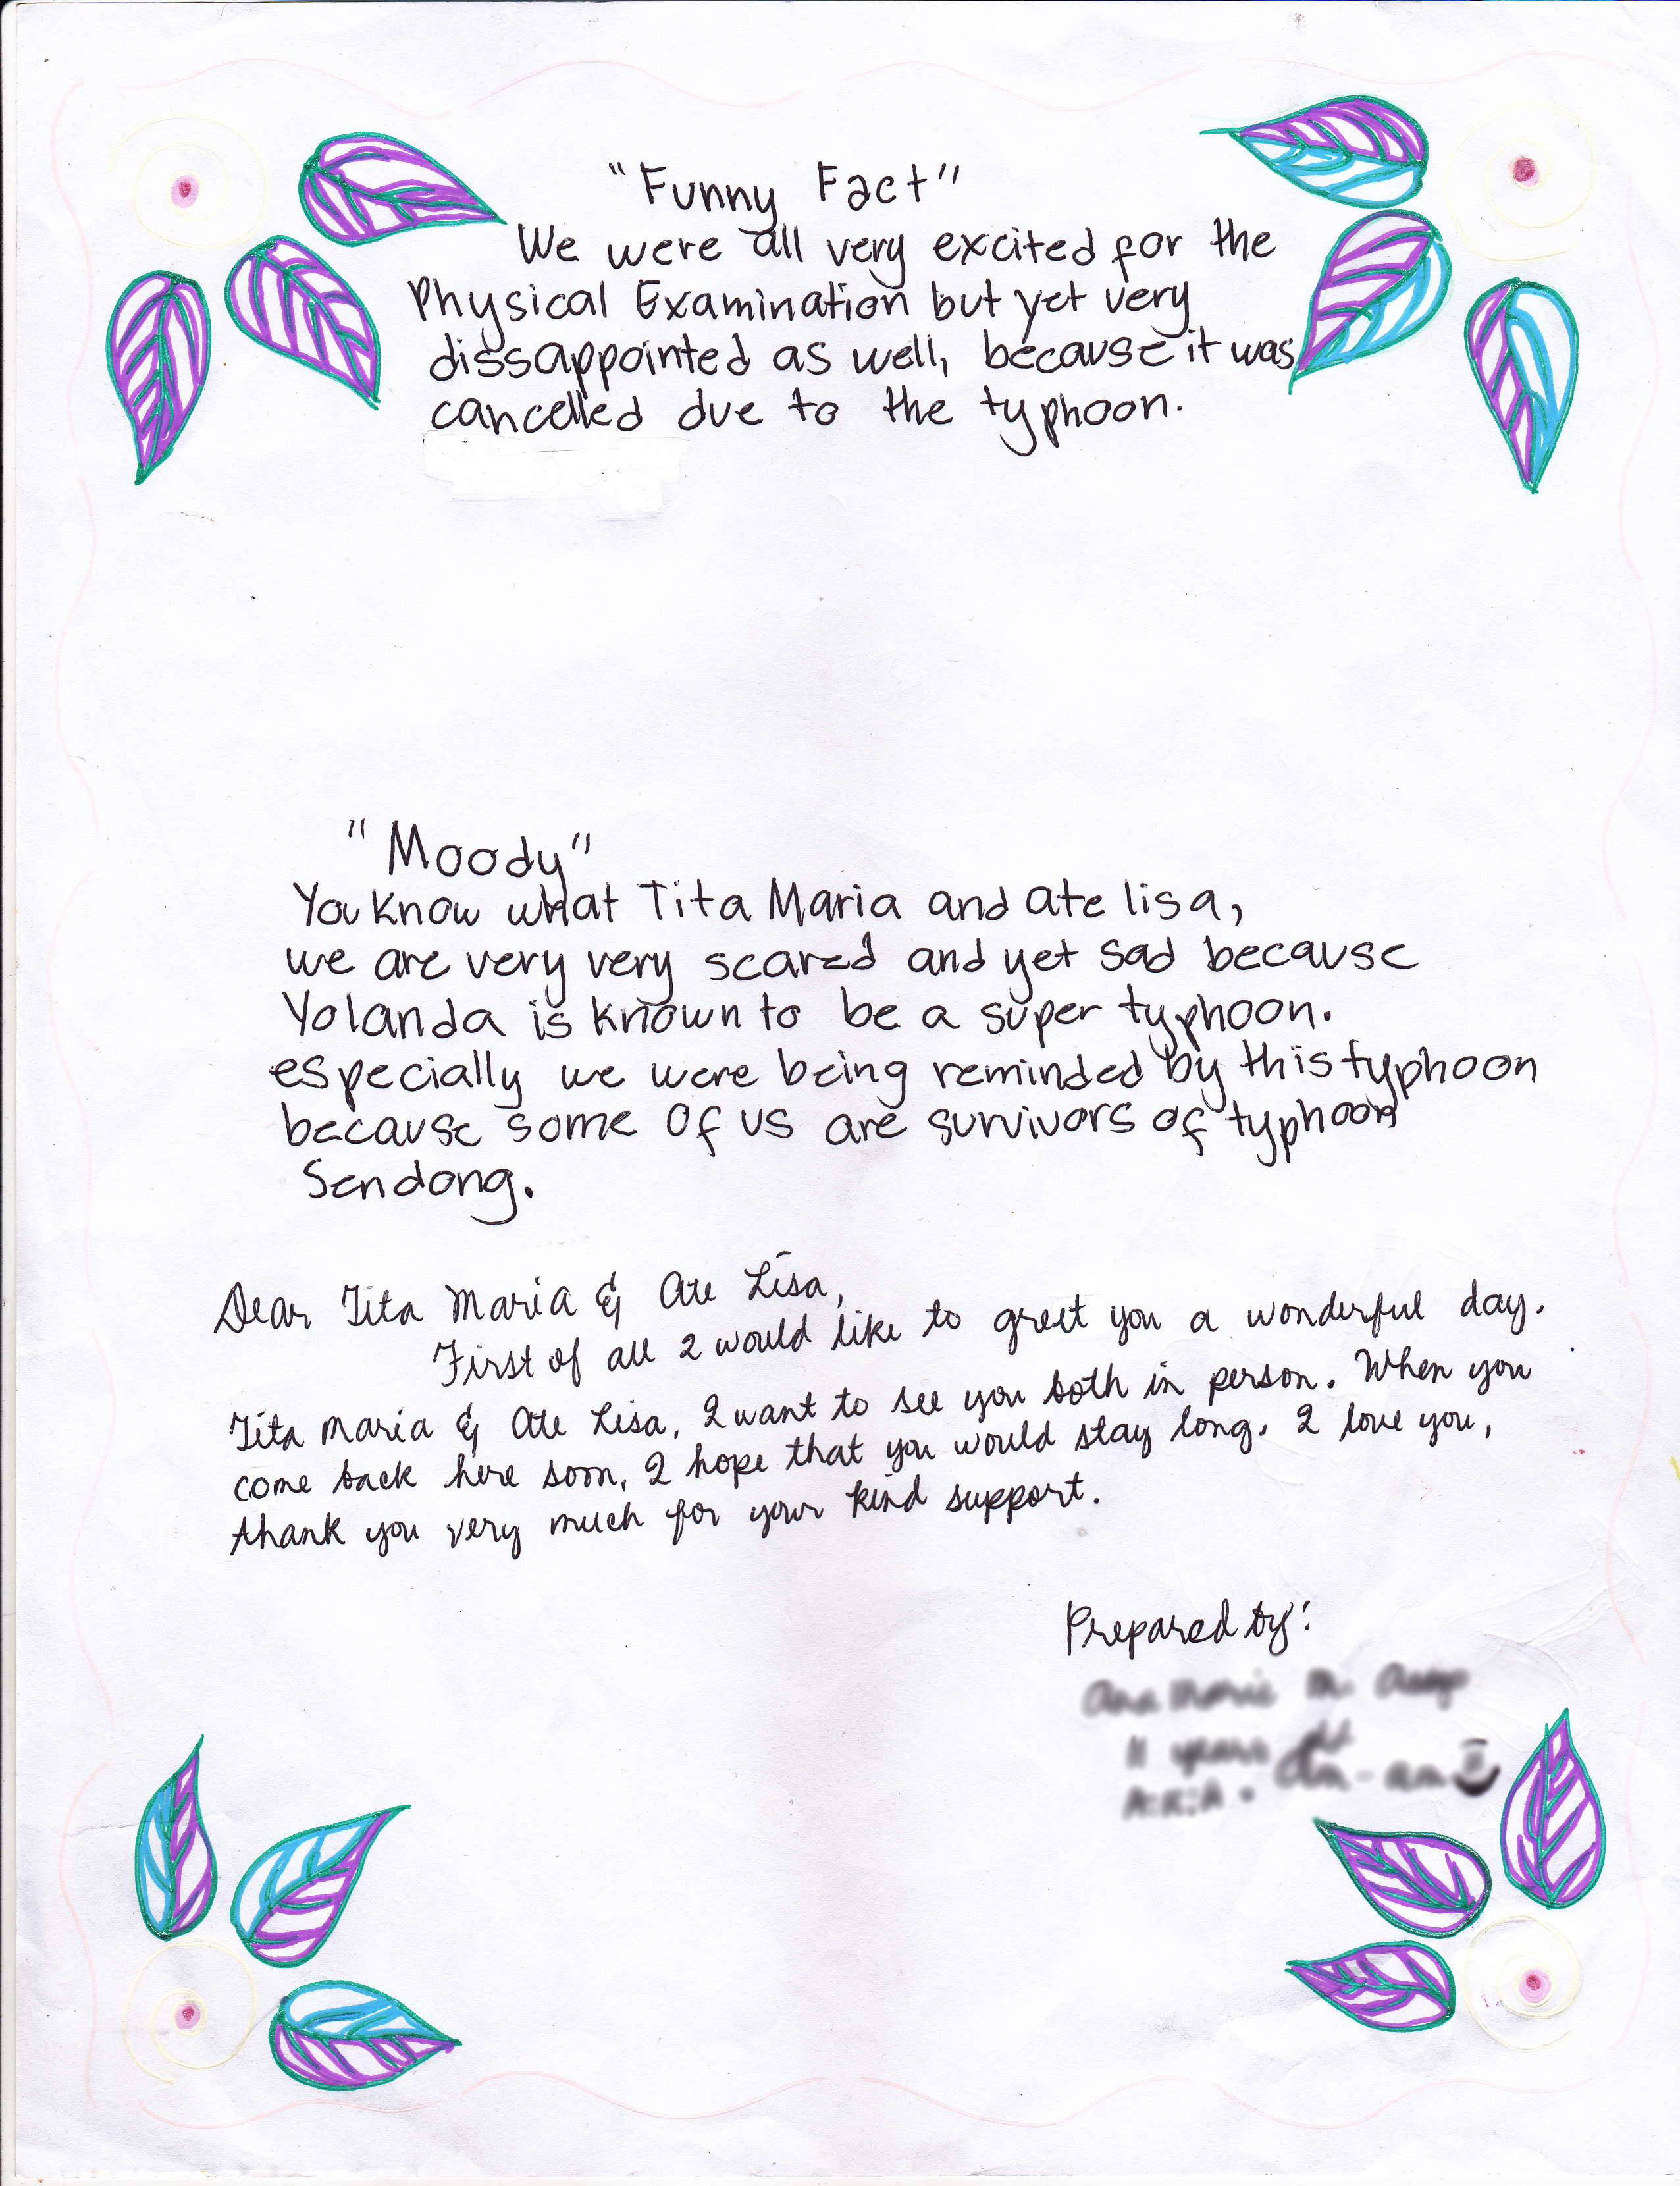 "Funny Fact"
We were all very excited for the
Physical Examination but yet very
dissappointed as well, because it was
cancelled due to the typhoon.
"Moody"
You know what Tita Maria and ate lisa,
we are very very scared and yet sad because
Yolanda is known to be a super typhoon.
especially we were being reminded by this typhoon
because some of us are survivors of typhoon
Sendong.
Dear Tita Maria & Ate Lisa,
First of all I would like to greet you a wonderful day.
Tita Maria & Ate Lisa, I want to see you both in person. When you
come back here soon, I hope that you would stay long. I love you,
thank you very much for your kind support.
Prepared by: